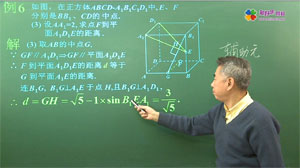 例6 如图，在正方体ABCD-A₁B₁C₁D₁中，E、F
分别是BB₁、CD的中点，
(3) 设AA₁=2，求点F到平
面A₁D₁E的距离.
解 (3)取AB的中点G，
∵ GF∥A₁D₁⇒GF∥平面A₁D₁E
∴ F到平面A₁D₁E的距离等于
G到平面A₁E的距离.
连B₁G, B₁G⊥A₁E于点H,且B₁G⊥A₁D₁,
∴ d=GH=√5-1×sin B₁EA₁=3/√5.
辅助元